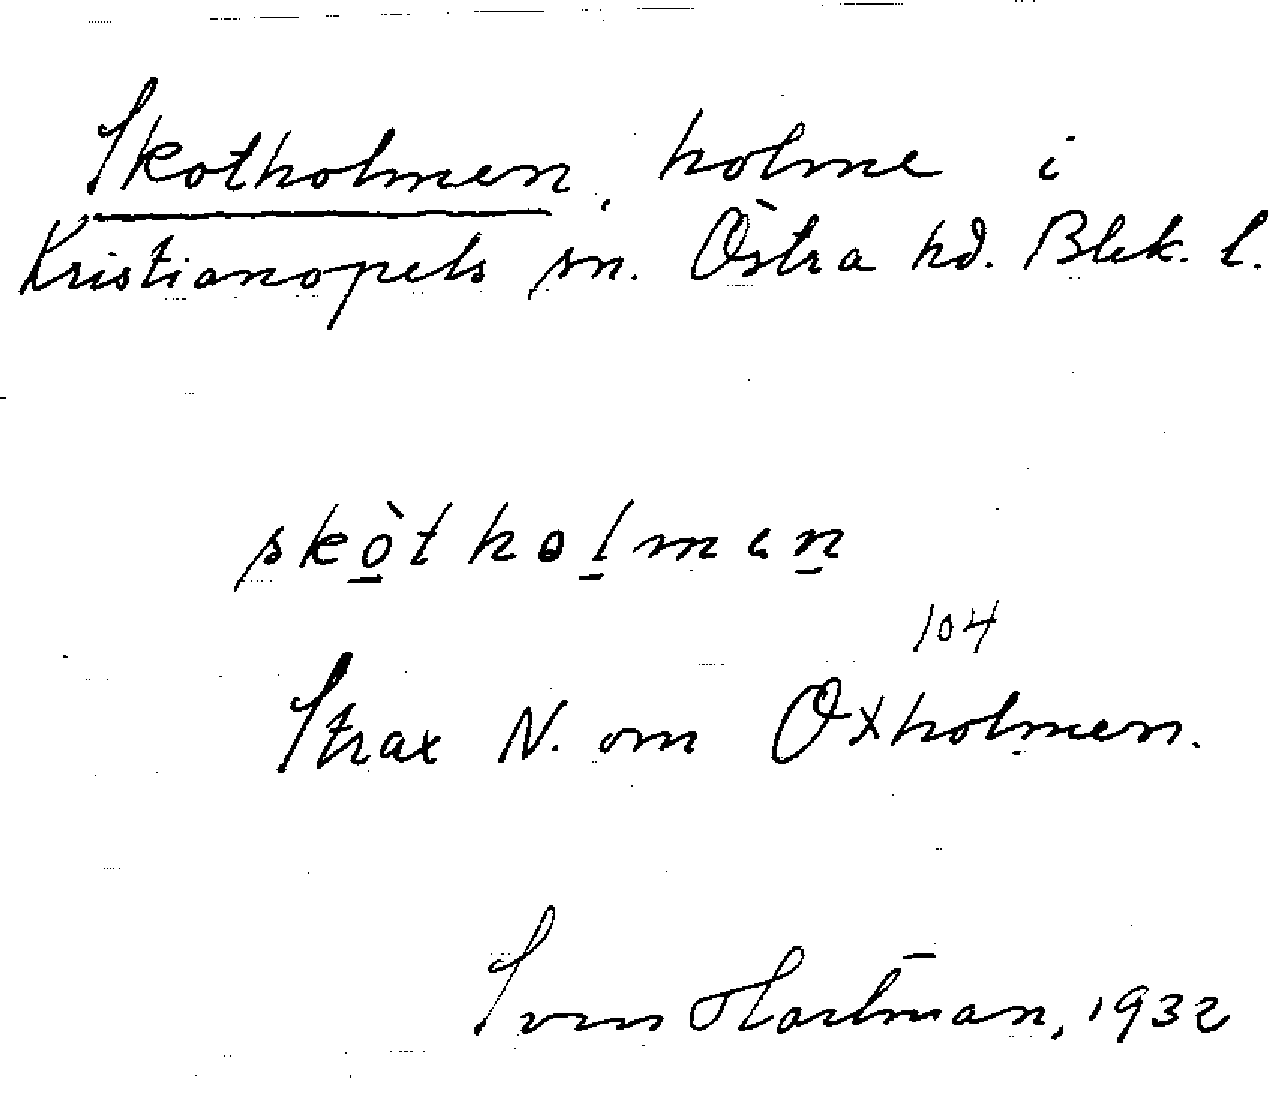 Skotholmen, holme i
Kristianopels sn. Östra hd. Blek. l.
skòtholmen
104
Strax N. om Oxholmen.
Sven Hartman, 1932